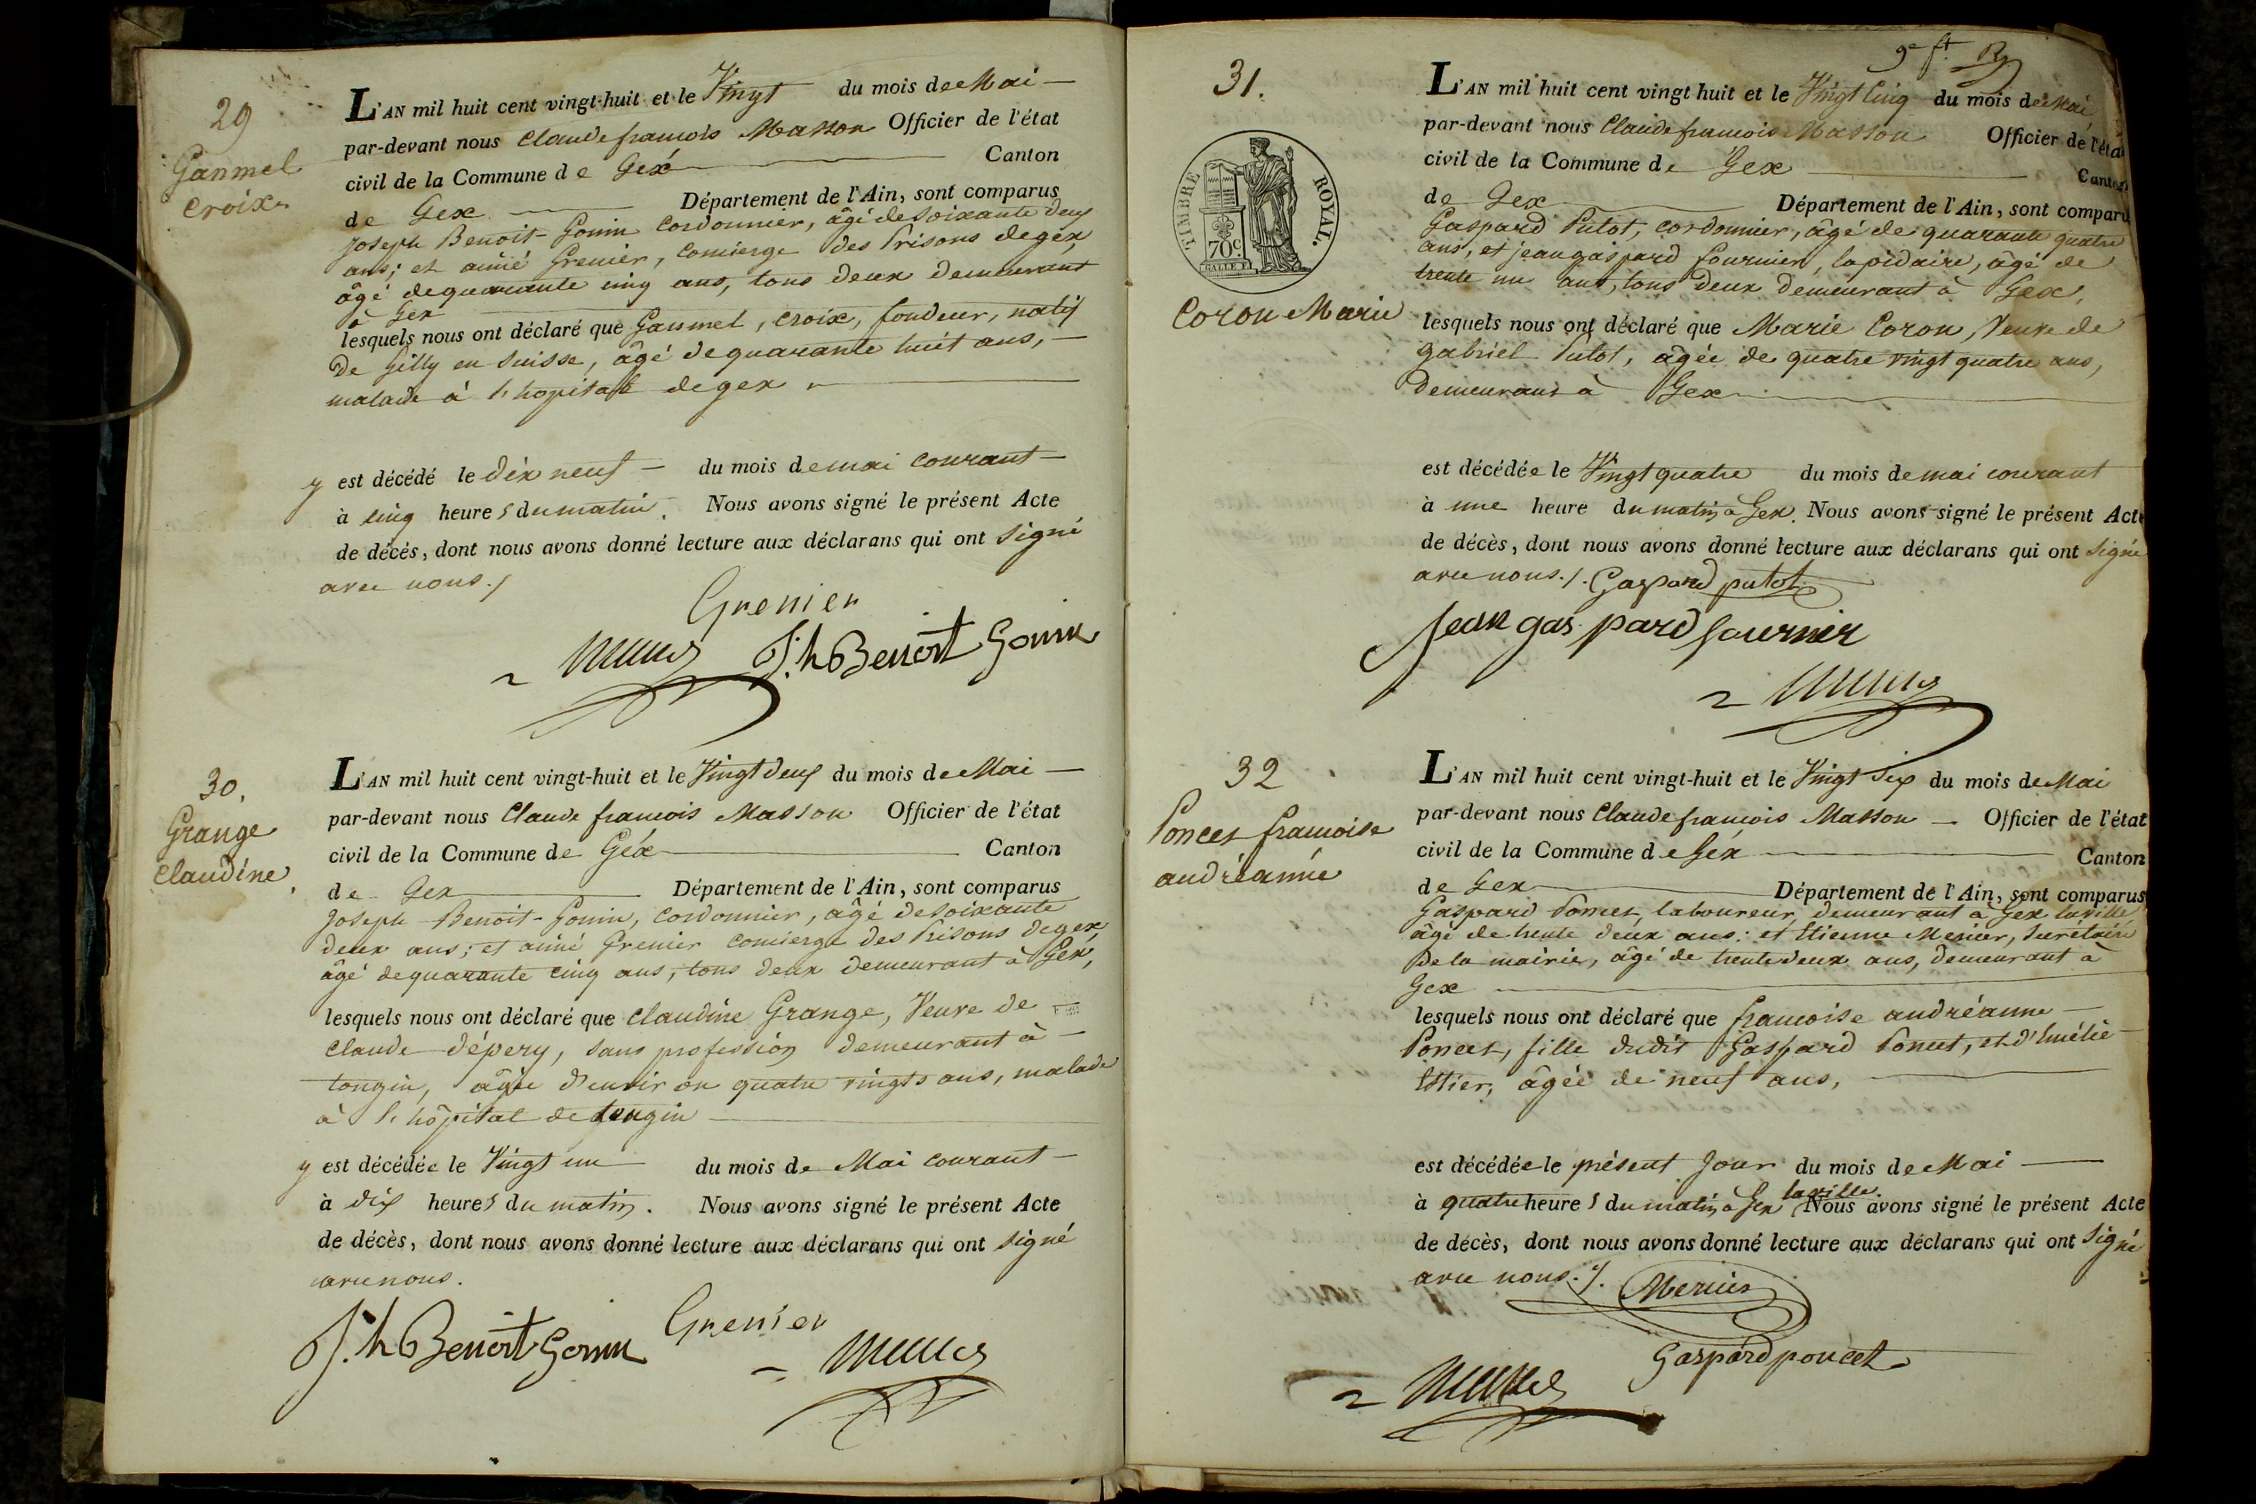 29
Ganmel
croix
L'AN mil huit cent vingt-huit et le Vingt du mois de Mai
par-devant nous Claude francois Masson Officier de l'état
civil de la Commune de Gex Canton
de Gex Département de l'Ain, sont comparus
joseph Benoit-Gonin cordonnier, âgé de soixante deux
ans; et aimé Grenier, concierge des Prisons de gex
âgé de quarante cinq ans, tous deux demeurant
à Gex
lesquels nous ont déclaré que Ganmel, croix, fondeur, natif
de Gilly en Suisse, âgé de quarante huit ans,
malade à l'hopital de gex
y est décédé le dix neuf du mois de mai courant
à cinq heures du matin. Nous avons signé le présent Acte
de décès, dont nous avons donné lecture aux déclarans qui ont signé
avec nous./
Grenier
J.h Benoit Gonin
30.
Grange
Claudine
L'AN mil huit cent vingt-huit et le Vingt deux du mois de Mai
par-devant nous Claude francois Masson Officier de l'état
civil de la Commune de Gex Canton
de Gex Département de l'Ain, sont comparus
joseph Benoit-Gonin, cordonnier, âgé de soixante
deux ans; et aimé Grenier concierge des Prisons de gex,
âgé de quarante cinq ans, tous deux demeurant à Gex,
lesquels nous ont déclaré que Claudine Grange, Veuve de
claude dépery, sans profession demeurant à
tougin, âgée d'environ quatre vingts ans, malade
à l'hôpital de tougin
y est décédée le Vingt un du mois de Mai courant
à dix heures du matin. Nous avons signé le présent Acte
de décès, dont nous avons donné lecture aux déclarans qui ont signé
avec nous.
J.h Benoit Gonin
Grenier
31.
TIMBRE ROYAL.
70c.
Coron Marie
L'AN mil huit cent vingt huit et le Vingt Cinq du mois de Mai
par-devant nous Claude francois Masson Officier de l'éta
civil de la Commune de Gex Canton
de Gex Département de l'Ain, sont comparu
Gaspard Putot, cordonnier, âgé de quarante quatre
ans, et jean gaspard fournier, lapidaire, âgé de
trente un ans, tous deux demeurant à Gex,
lesquels nous ont déclaré que Marie Coron, Veuve de
gabriel Putot, âgée de quatre vingt quatre ans,
demeurant à Gex
est décédée le Vingt quatre du mois de mai courant
à une heure du matin à Gex. Nous avons signé le présent Acte
de décès, dont nous avons donné lecture aux déclarans qui ont signé
avec nous./. Gaspard putot
Jean gaspard fournier
32
Poncet francoise
andréanne
L'AN mil huit cent vingt-huit et le Vingt Six du mois de Mai
par-devant nous Claude francois Masson Officier de l'état
civil de la Commune de Gex Canton
de Gex Département de l'Ain, sont comparus
Gaspard Poncet, laboureur, demeurant à Gex la ville,
âgé de trente deux ans; et Etienne Mercier, Secrétaire
de la mairie, âgé de trente deux ans, demeurant à
Gex
lesquels nous ont déclaré que francoise andréanne
Poncet, fille dudit Gaspard Poncet, et d'
âgée de neuf ans,
est décédée le présent jour du mois de Mai
à quatre heures du matin à Gex la ville. Nous avons signé le présent Acte
de décès, dont nous avons donné lecture aux déclarans qui ont signé
avec nous./. Mercier
Gaspard poncet